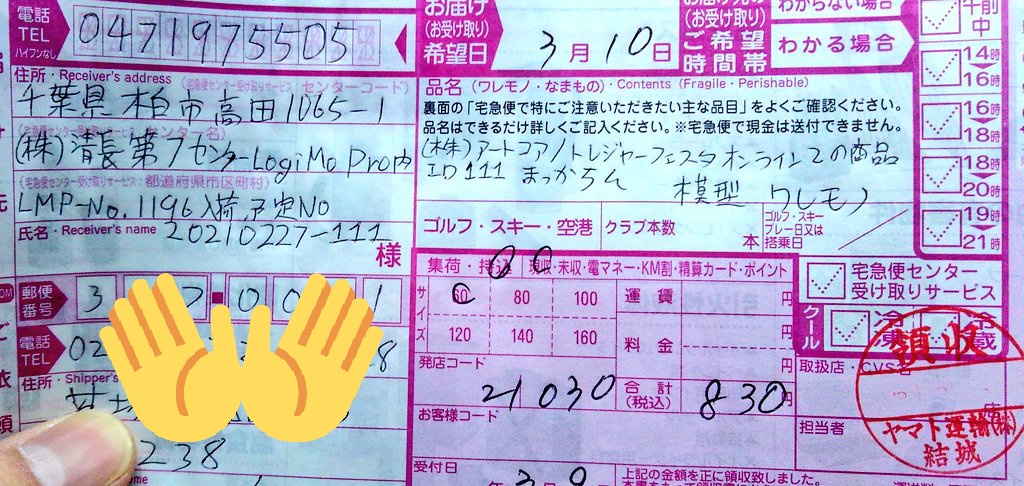 電話
TEL
ハイフンなし
0471975505
お届け
(お受け取り)
希望日
3月10日
(お受け取り)
ご希望
時間帯
わからない場合
わかる場合
午前中
14時
16時
16時
18時
18時
20時
19時
21時
住所・Receiver's address
千葉県柏市高田1065-1
(株)清長第7センターLogiMoPro内
(宅急便センター受け取りサービス:都道府県市区町村)
LMP-No.1196入荷予定No
氏名・Receiver's name
20210227-111
様
品名(ワレモノ・なまもの)・Contents (Fragile・Perishable)
裏面の「宅急便で特にご注意いただきたい主な品目」をよくご確認ください。
品名はできるだけ詳しくご記入ください。※宅急便で現金は送付できません。
(株)アートコア/トレジャーフェスタオンライン2の商品
ID111 まっかちん
模型 ワレモノ
ゴルフ・スキー・空港
クラブ本数
本
ゴルフ・スキー
プレー日又は
搭乗日
宅急便センター
受け取りサービス
クール
集荷・持込
現収・未収・電マネー・KM割・精算カード・ポイント
サイズ
60 80 100
120 140 160
運賃
円
料金
円
合計
(税込)
830円
発店コード
21030
お客様コード
受付日
3 9
上記の金額を正に領収致しました。
取扱店・CVS名
担当者
領収
ヤマト運輸(株)
結城
郵便
番号
3
1
電話
TEL
02
8
住所・Shipper's
238